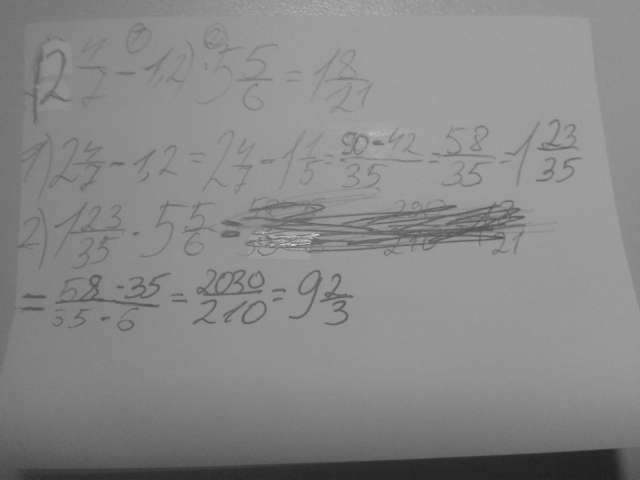 (2 4/7 - 1,2) · 5 5/6 = 1 8/21
1) 2 4/7 - 1,2 = 2 4/7 - 1 1/5 = 90-42/35 = 58/35 = 1 23/35
2) 1 23/35 · 5 5/6 =
= 58·35/35·6 = 2030/210 = 9 2/3